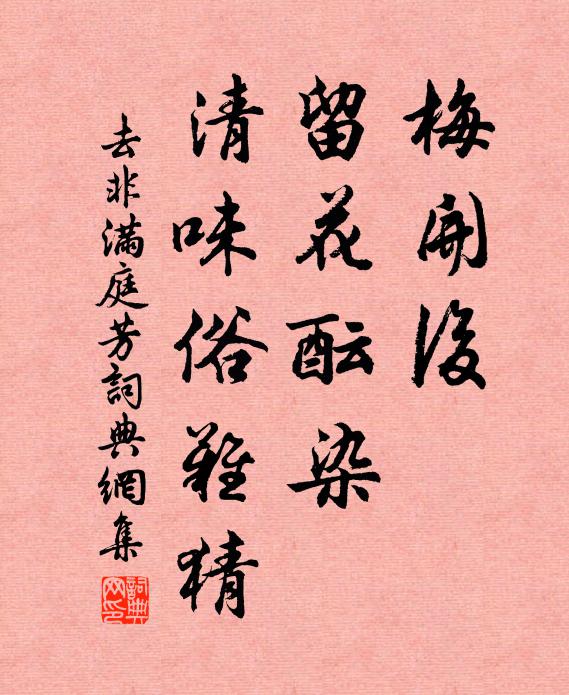 梅開後
留花酝染
清味俗難猜
去非滿庭芳詞典網集
詞典网印